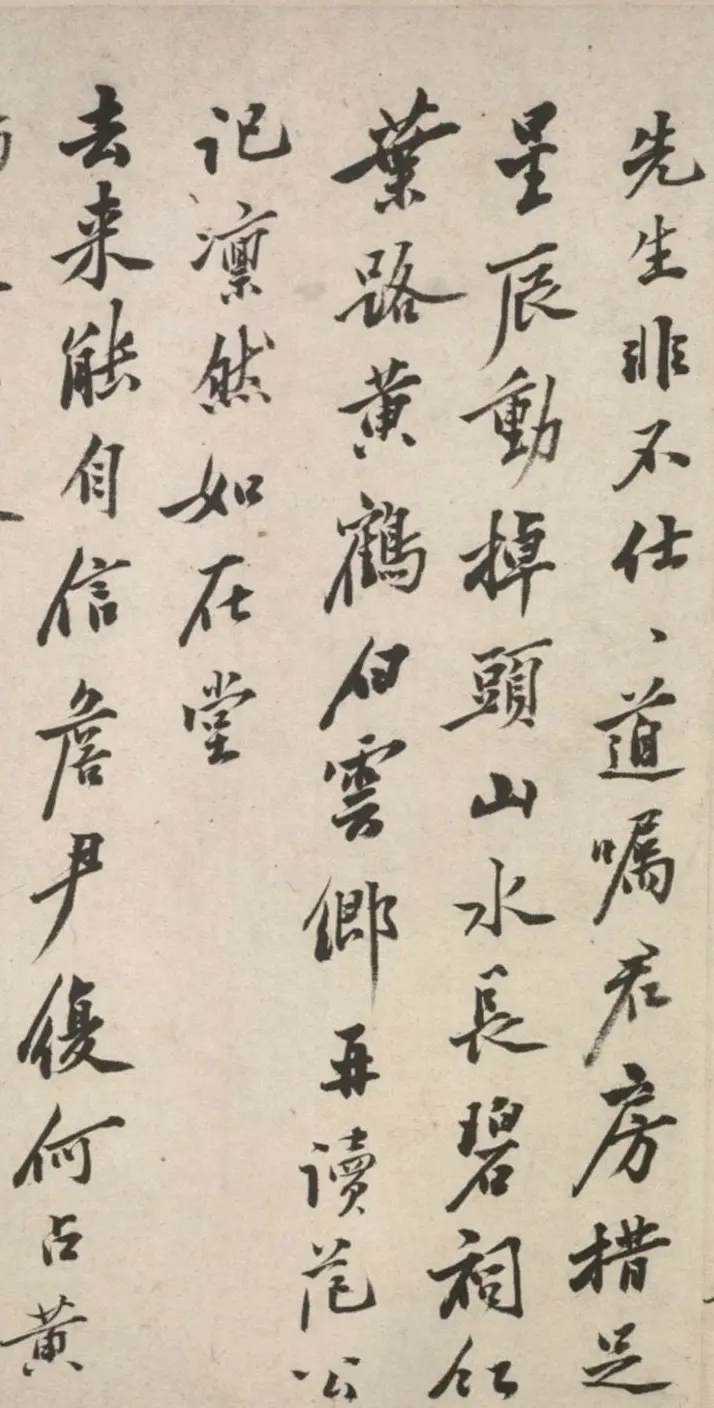 先生非不仕、道嘱君房措足
星辰動掉頭山水長碧祠红
葉路黄鶴白雲鄉再读范公
记凛然如在堂
去来能自信詹尹復何占黄